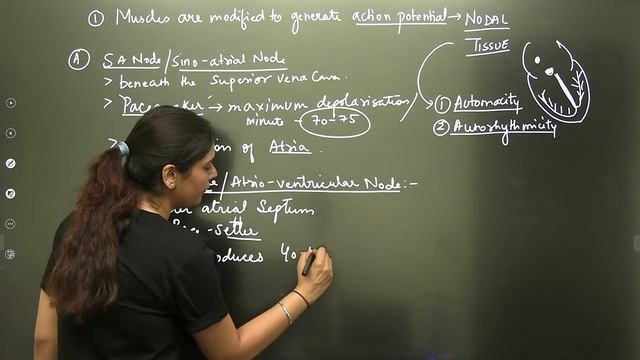 ① Muscles are modified to generate action potential → NODAL
TISSUE
Ⓐ SA Node/Sino-atrial Node
> beneath the Superior vena Cava.
> Pacemaker → maximum depolarisation/
minute - 70-75
① Automacity
② Autorhythmicity
> of Atria.
/Atrio-ventricular Node:-
atrial Septum
-Setter
40